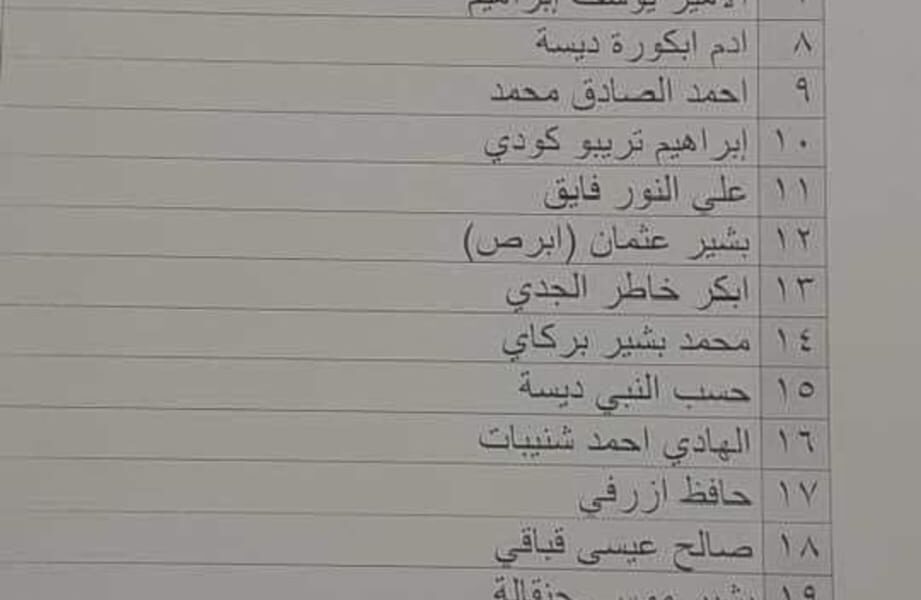 الامير يوسف إبراهيم
٨ ادم ابكورة ديسة
٩ احمد الصادق محمد
١٠ إبراهيم تريبو كودي
١١ علي النور فايق
١٢ بشير عثمان (ابرص)
١٣ ابكر خاطر الجدي
١٤ محمد بشير بركاي
١٥ حسب النبي ديسة
١٦ الهادي احمد شنيبات
١٧ حافظ ازرفي
١٨ صالح عيسى قباقي
١٩ بشير موسى جنقالة